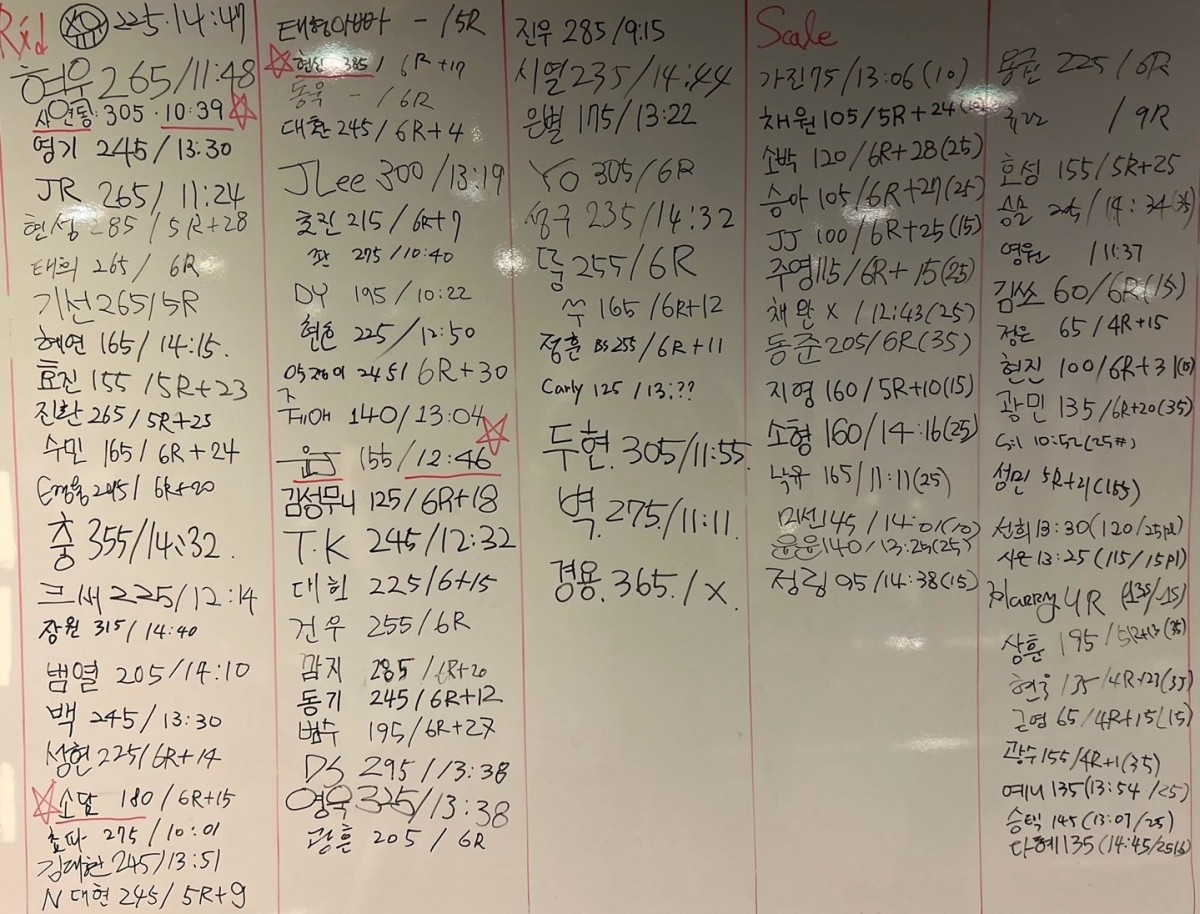 Rxd
225·14:47
현우 265/11:48
사연동: 305 · 10:39
영기 245/13:30
JR 265/11:24
현성 285/5R+28
태희 265/ 6R
기선 265/5R
혜연 165/14:15.
효진 155/5R+23
진환 265/5R+25
수민 165/6R+24
245/6R+20
충 355/14:32.
크쌔 225/12:14
장원 315/14:40
범열 205/14:10
백 245/13:30
성현 225/6R+14
소담 180/6R+15
초파 275/10:01
김대환 245/13:51
N 대현 245/5R+9
태형아빠 - /5R
385/6R+17
동욱 - /6R
대환 245/6R+4
JLee 300/13:19
효진 215/6R+7
쫜 275/10:40
DY 195/10:22
현호 225/12:50
245/6R+30
140/13:04
윤J 155/12:46
김성무니 125/6R+18
T.K 245/12:32
대헌 225/6+15
건우 255/6R
감지 285/6R+20
동기 245/6R+12
범수 195/6R+27
DS 295/13:38
영욱 325/13:38
광훈 205/6R
진우 285/9:15
시열 235/14:44
은별 175/13:22
YO 305/6R
성구 235/14:32
255/6R
쑤 165/6R+12
정훈 BS 255/6R+11
Carly 125/13:??
두현. 305/11:55.
벽. 275/11:11.
경용. 365./x.
Scale
가진 75/13:06(10)
채원 105/5R+24
소박 120/6R+28(25)
승아 105/6R+27(25)
JJ 100/6R+25(15)
주영 115/6R+15(25)
채완 x /12:43(25)
동준 205/6R(35)
지영 160/5R+10(15)
소형 160/14:16(25)
낙유 165/11:11(25)
미선 45/14:01(10)
윤윤 140/13:29(25)
정림 95/14:38(15)
225/6R
/9R
효성 155/5R+25
245/14:34(35)
영원 /11:37
김쏘 60/6R(15)
정은 65/4R+15
현진 100/6R+31(10)
광민 135/6R+20(35)
10:52(25#)
성민 5R+21(155)
선희 13:30(120/25pl)
시온 13:25(115/15pl)
Marry 4R (135/15)
상훈 195/5R+13(35)
현욱 135/4R+23(35)
근영 65/4R+15(15)
광수 155/4R+1(35)
예니 135(13:54/25)
승택 145(13:07/25)
다혜 135(14:45/25lb)